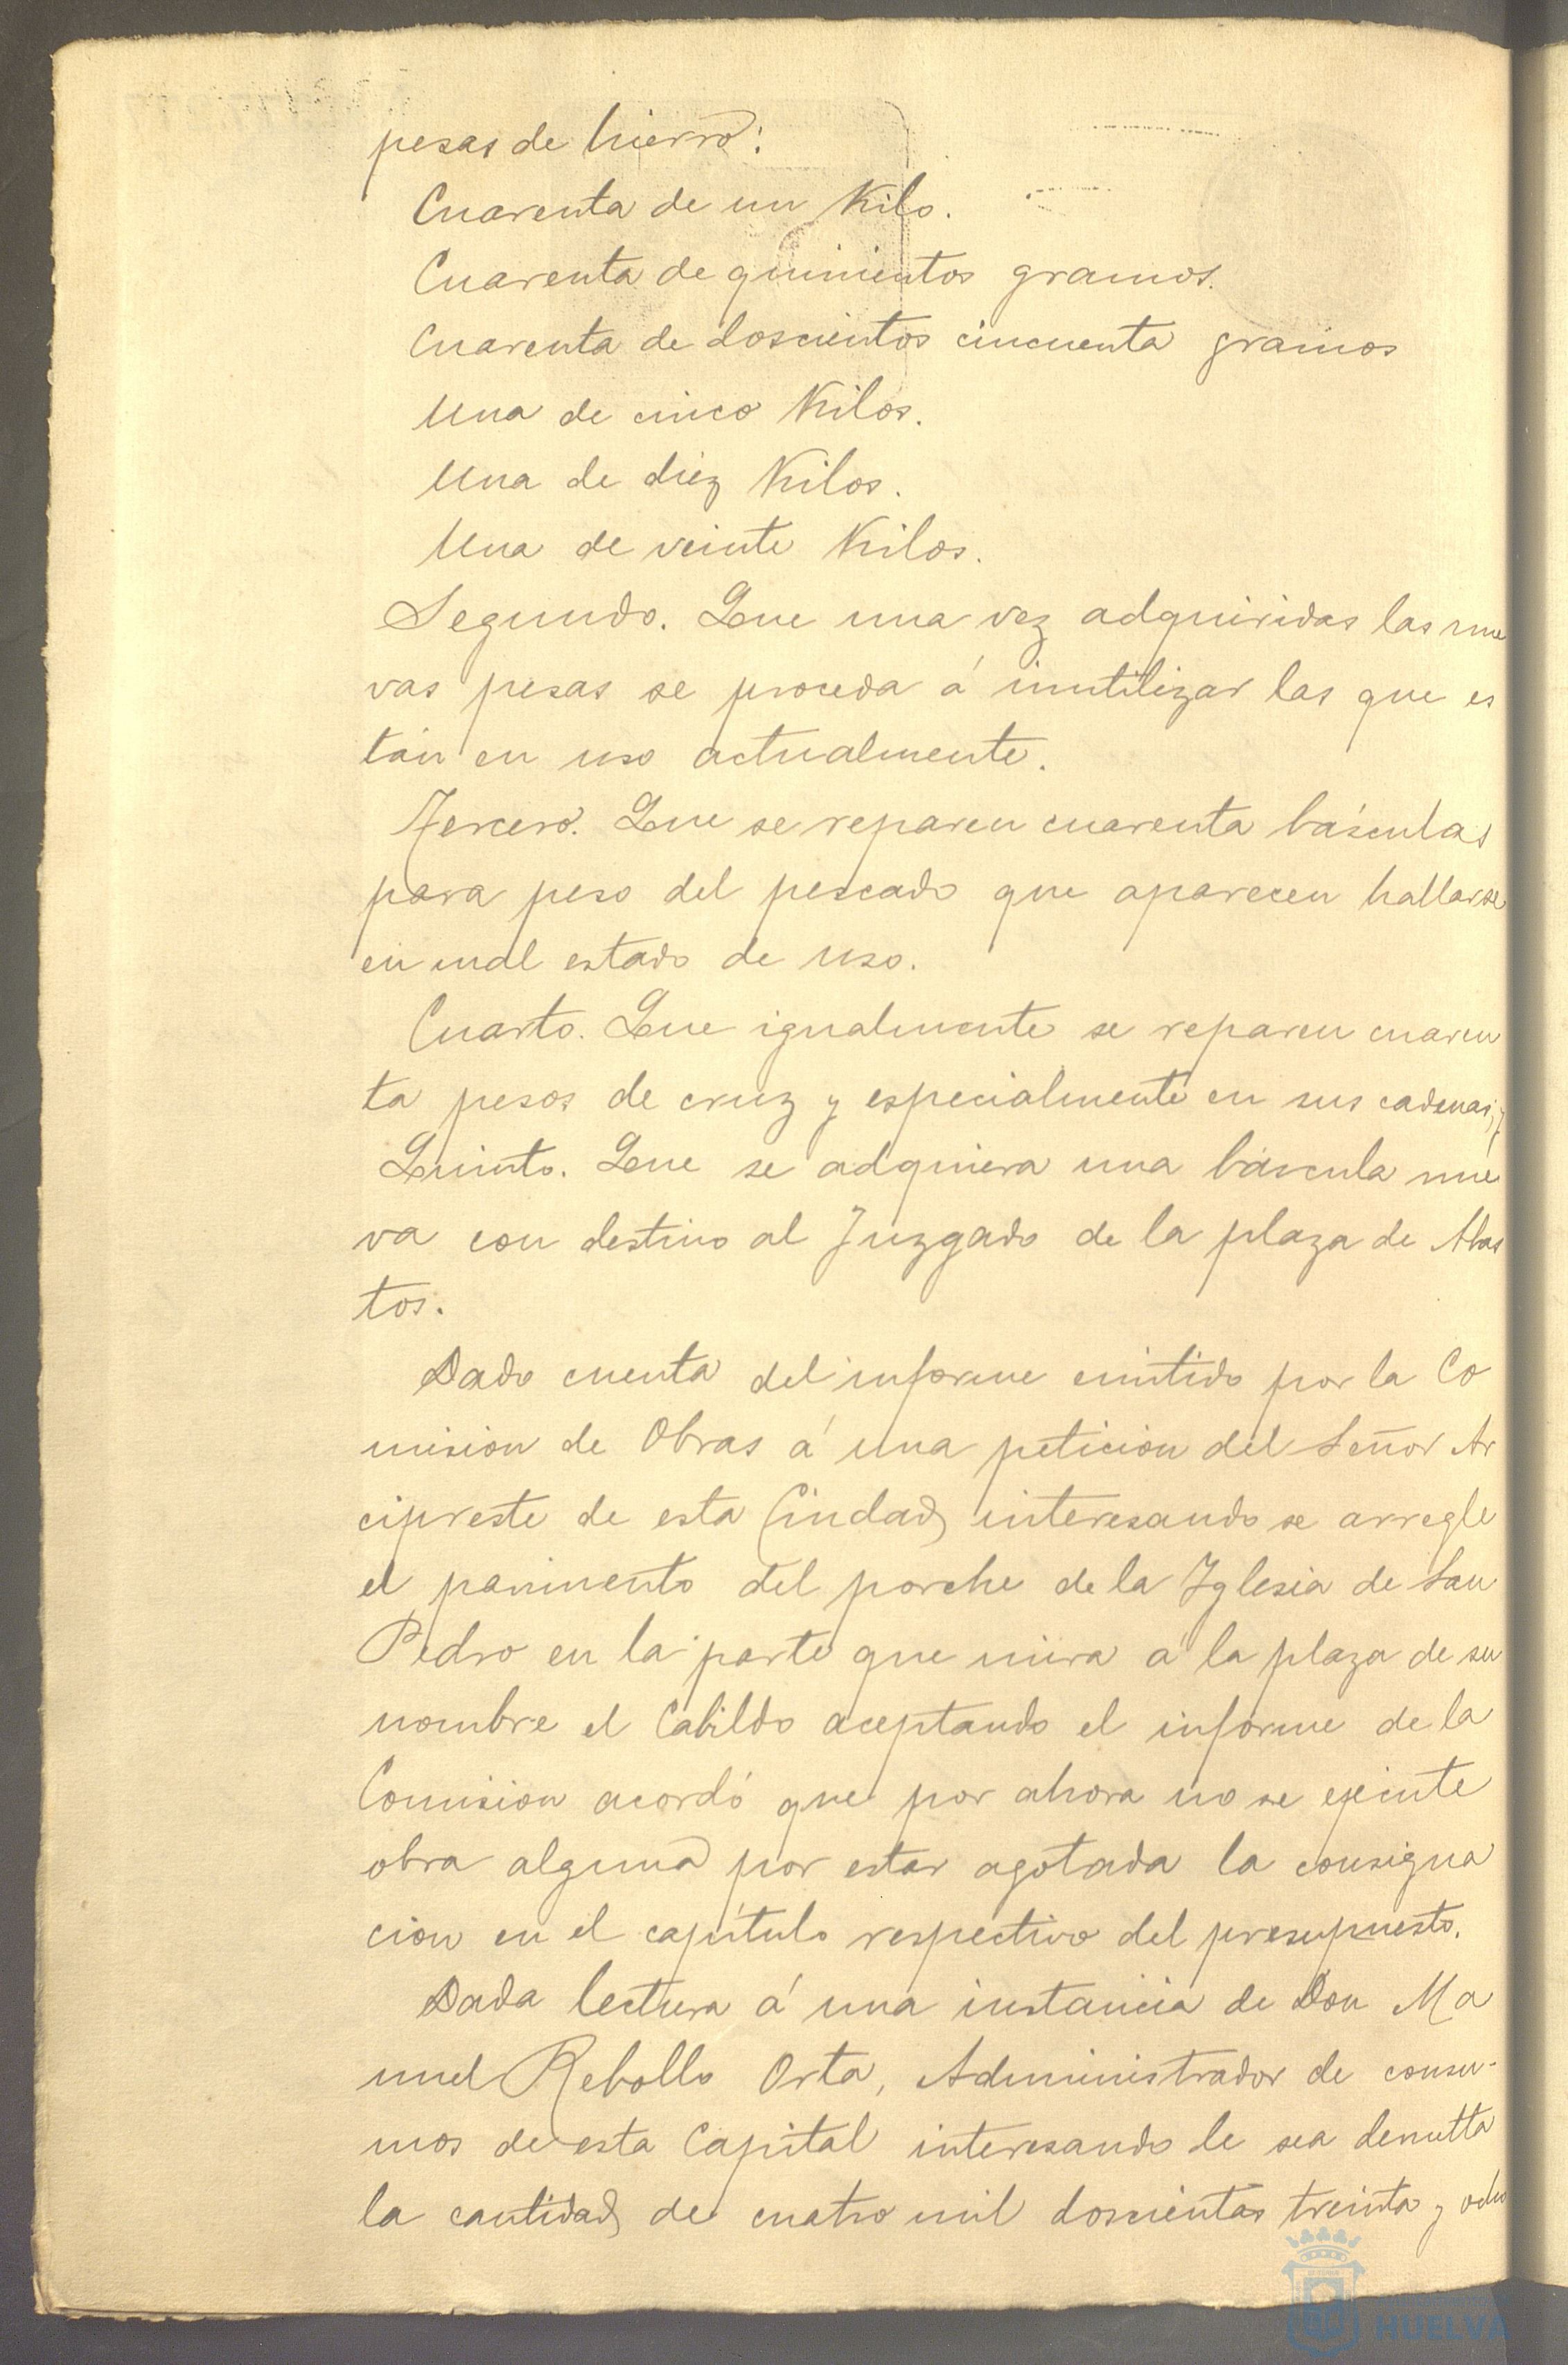 pesas de hierro:
Cuarenta de un Kilo.
Cuarenta de quinientos gramos.
Cuarenta de doscientos cincuenta gramos
Una de cinco Kilos.
Una de diez Kilos.
Una de veinte Kilos.
Segundo. Que una vez adquiridas las nue
vas pesas se proceda á inutilizar las que es
tán en uso actualmente.
Tercero. Que se reparen cuarenta básculas
para peso del pescado que aparecen hallarse
en mal estado de uso.
Cuarto. Que igualmente se reparen cuaren
ta pesos de cruz y especialmente en sus cadenas, y
Quinto. Que se adquiera una báscula nue
va con destino al Juzgado de la plaza de Abas
tos.
Dado cuenta del informe emitido por la Co
mision de Obras á una peticion del Señor Ar
cipreste de esta Ciudad, interesando se arregle
el pavimento del porche de la Iglesia de San
Pedro en la parte que mira á la plaza de su
nombre el Cabildo aceptando el informe de la
Comision acordó que por ahora no se ejecute
obra alguna por estar agotada la consigna
cion en el capítulo respectivo del presupuesto.
Dada lectura á una instancia de Don Ma
nuel Rebollo Orta, Administrador de consu-
mos de esta Capital interesando le sea
la cantidad de cuatro mil doscientas treinta y ocho
HUELVA